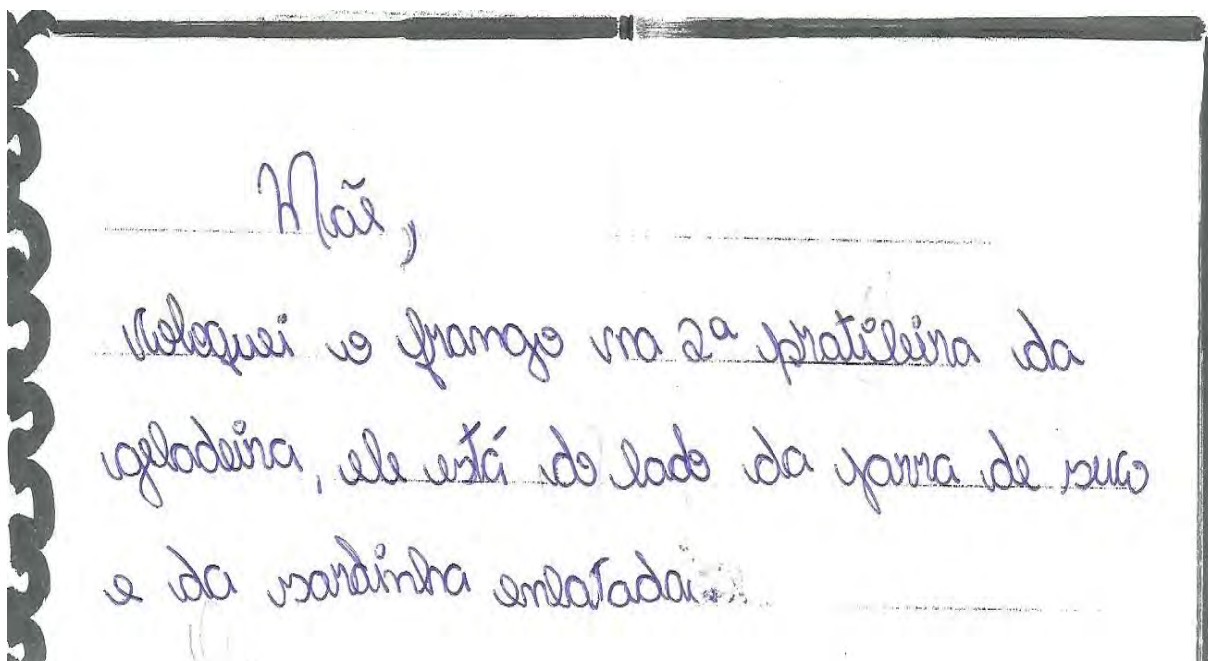 Mãe,
Coloquei o frango na 2ª pratileira da
geladeira, ele está do lado da jarra de suco
e da sardinha enlatada.